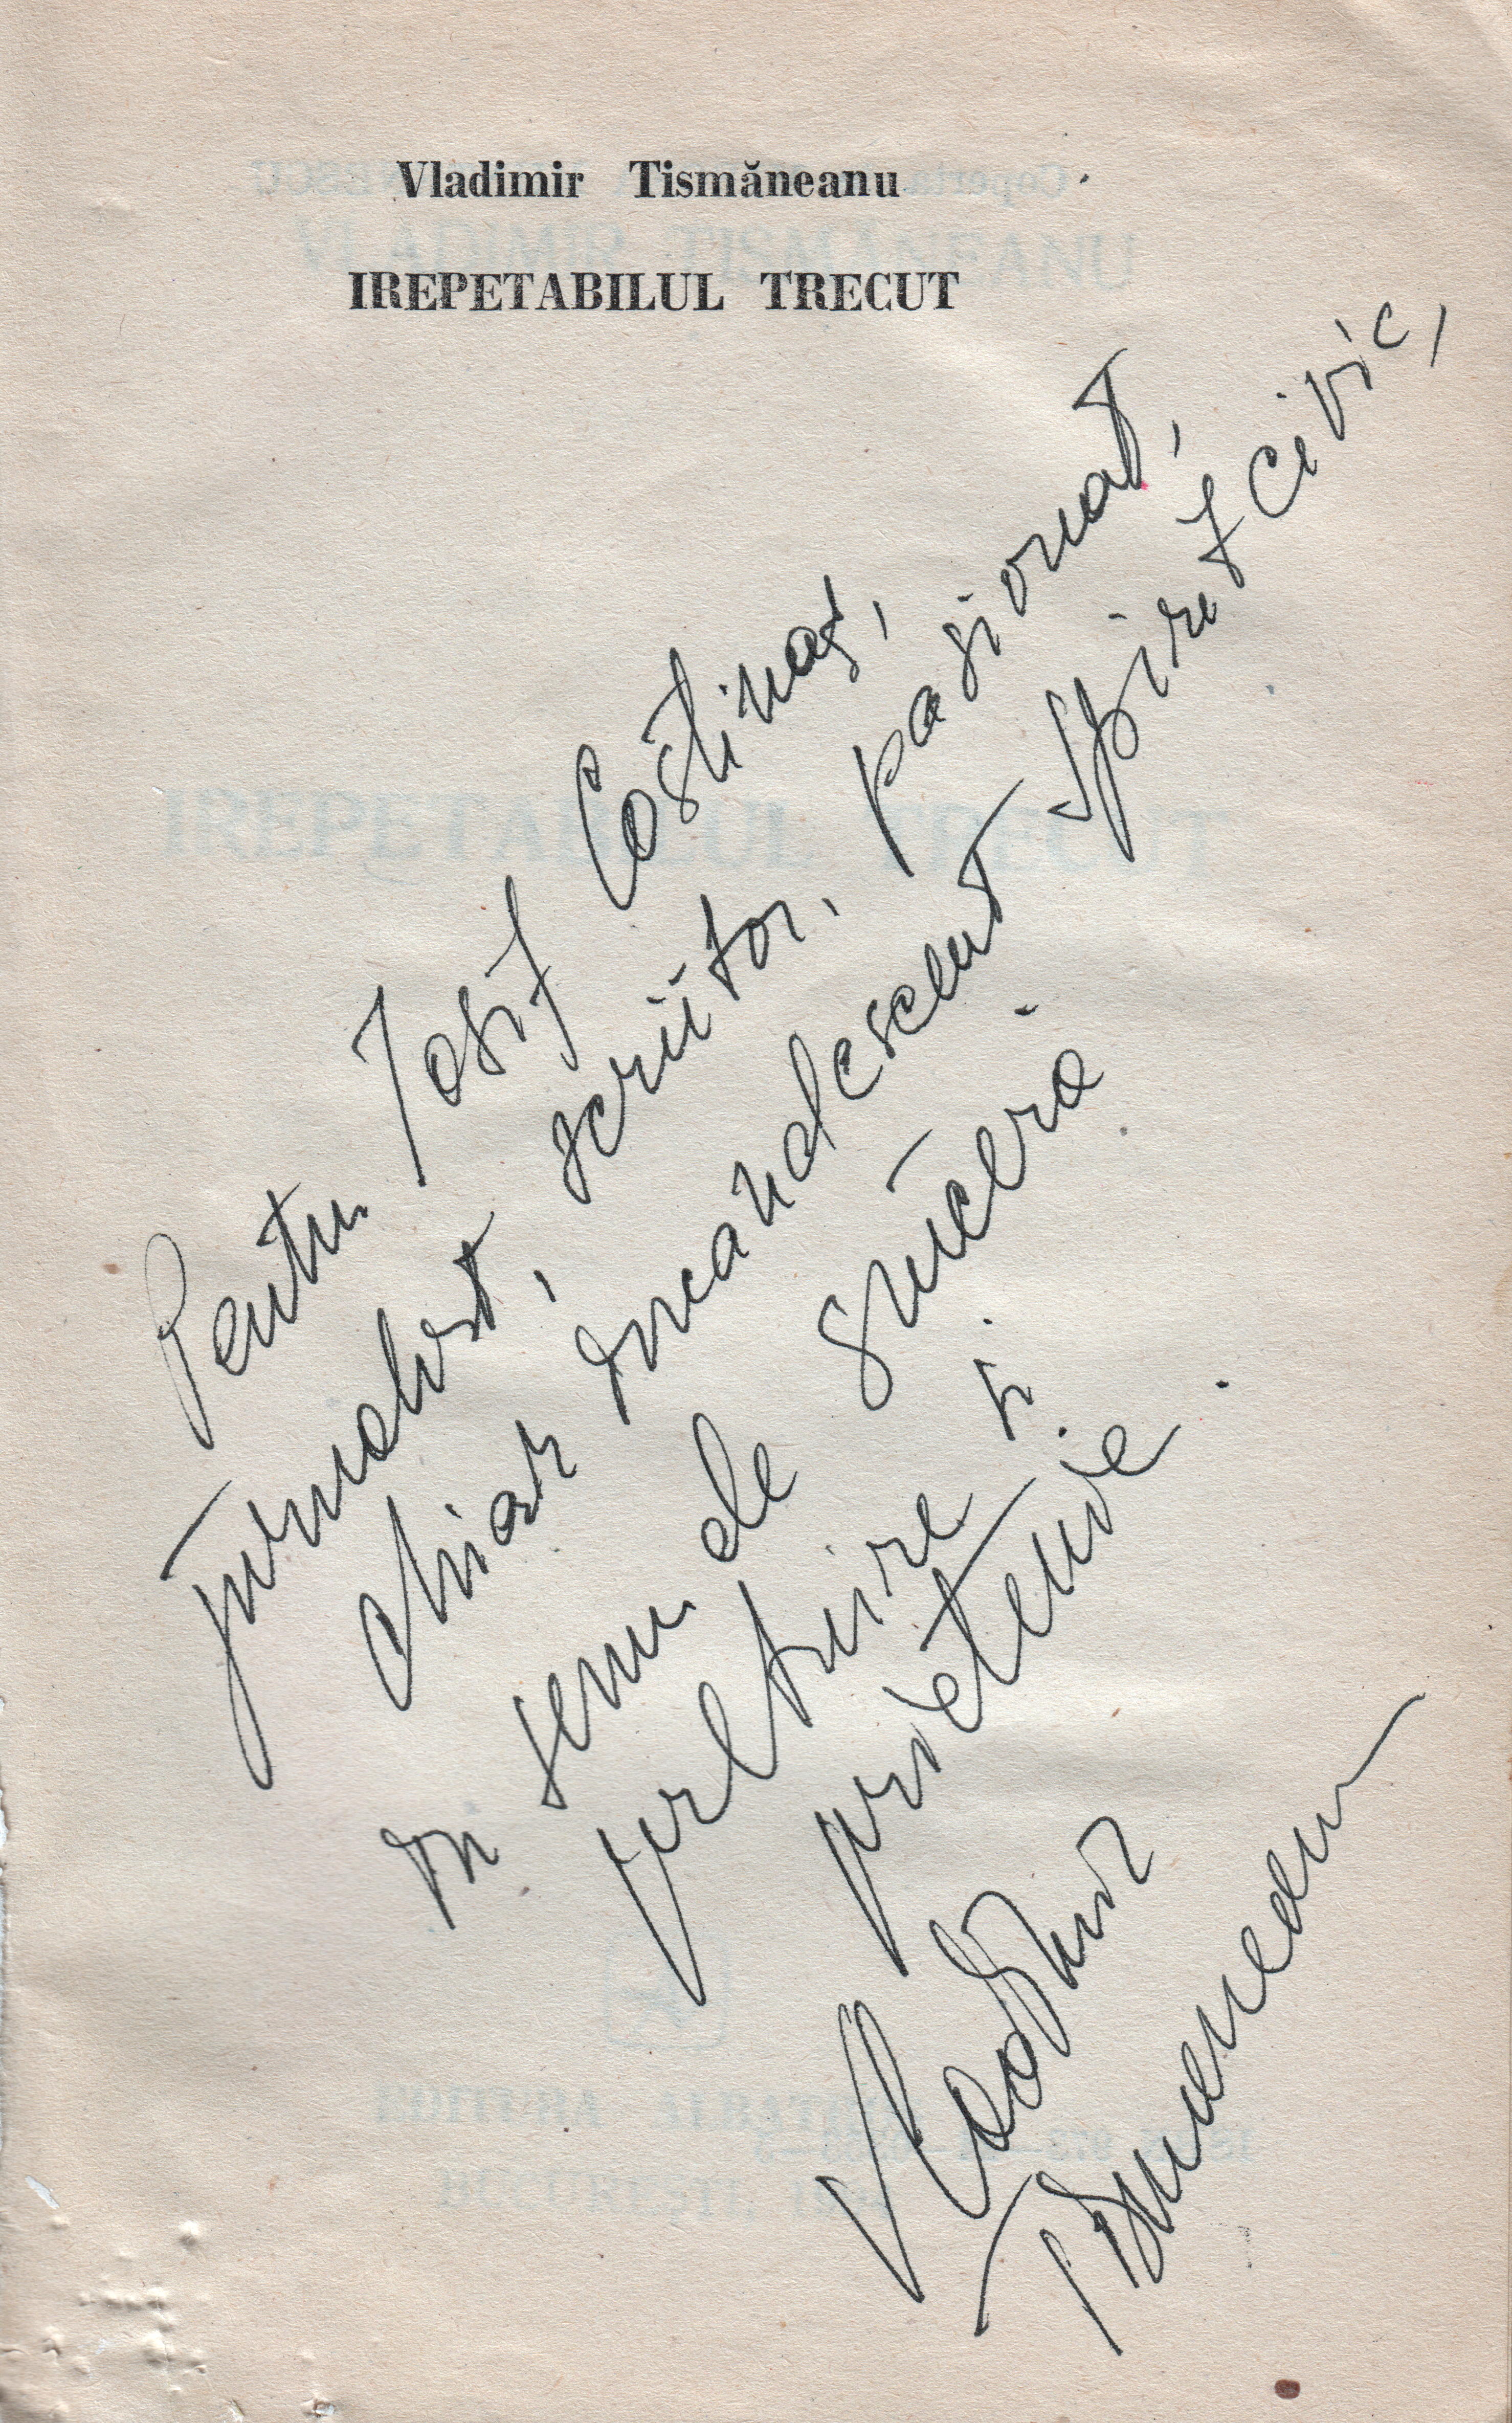 Vladimir Tismăneanu
IREPETABILUL TRECUT
Pentru Iosif Costinaș,
jurnalist, scriitor, pasionat,
chiar incandescent spirit civic,
în semn de sinceră
prețuire și
prietenie.
Vladimir
Tismaneanu